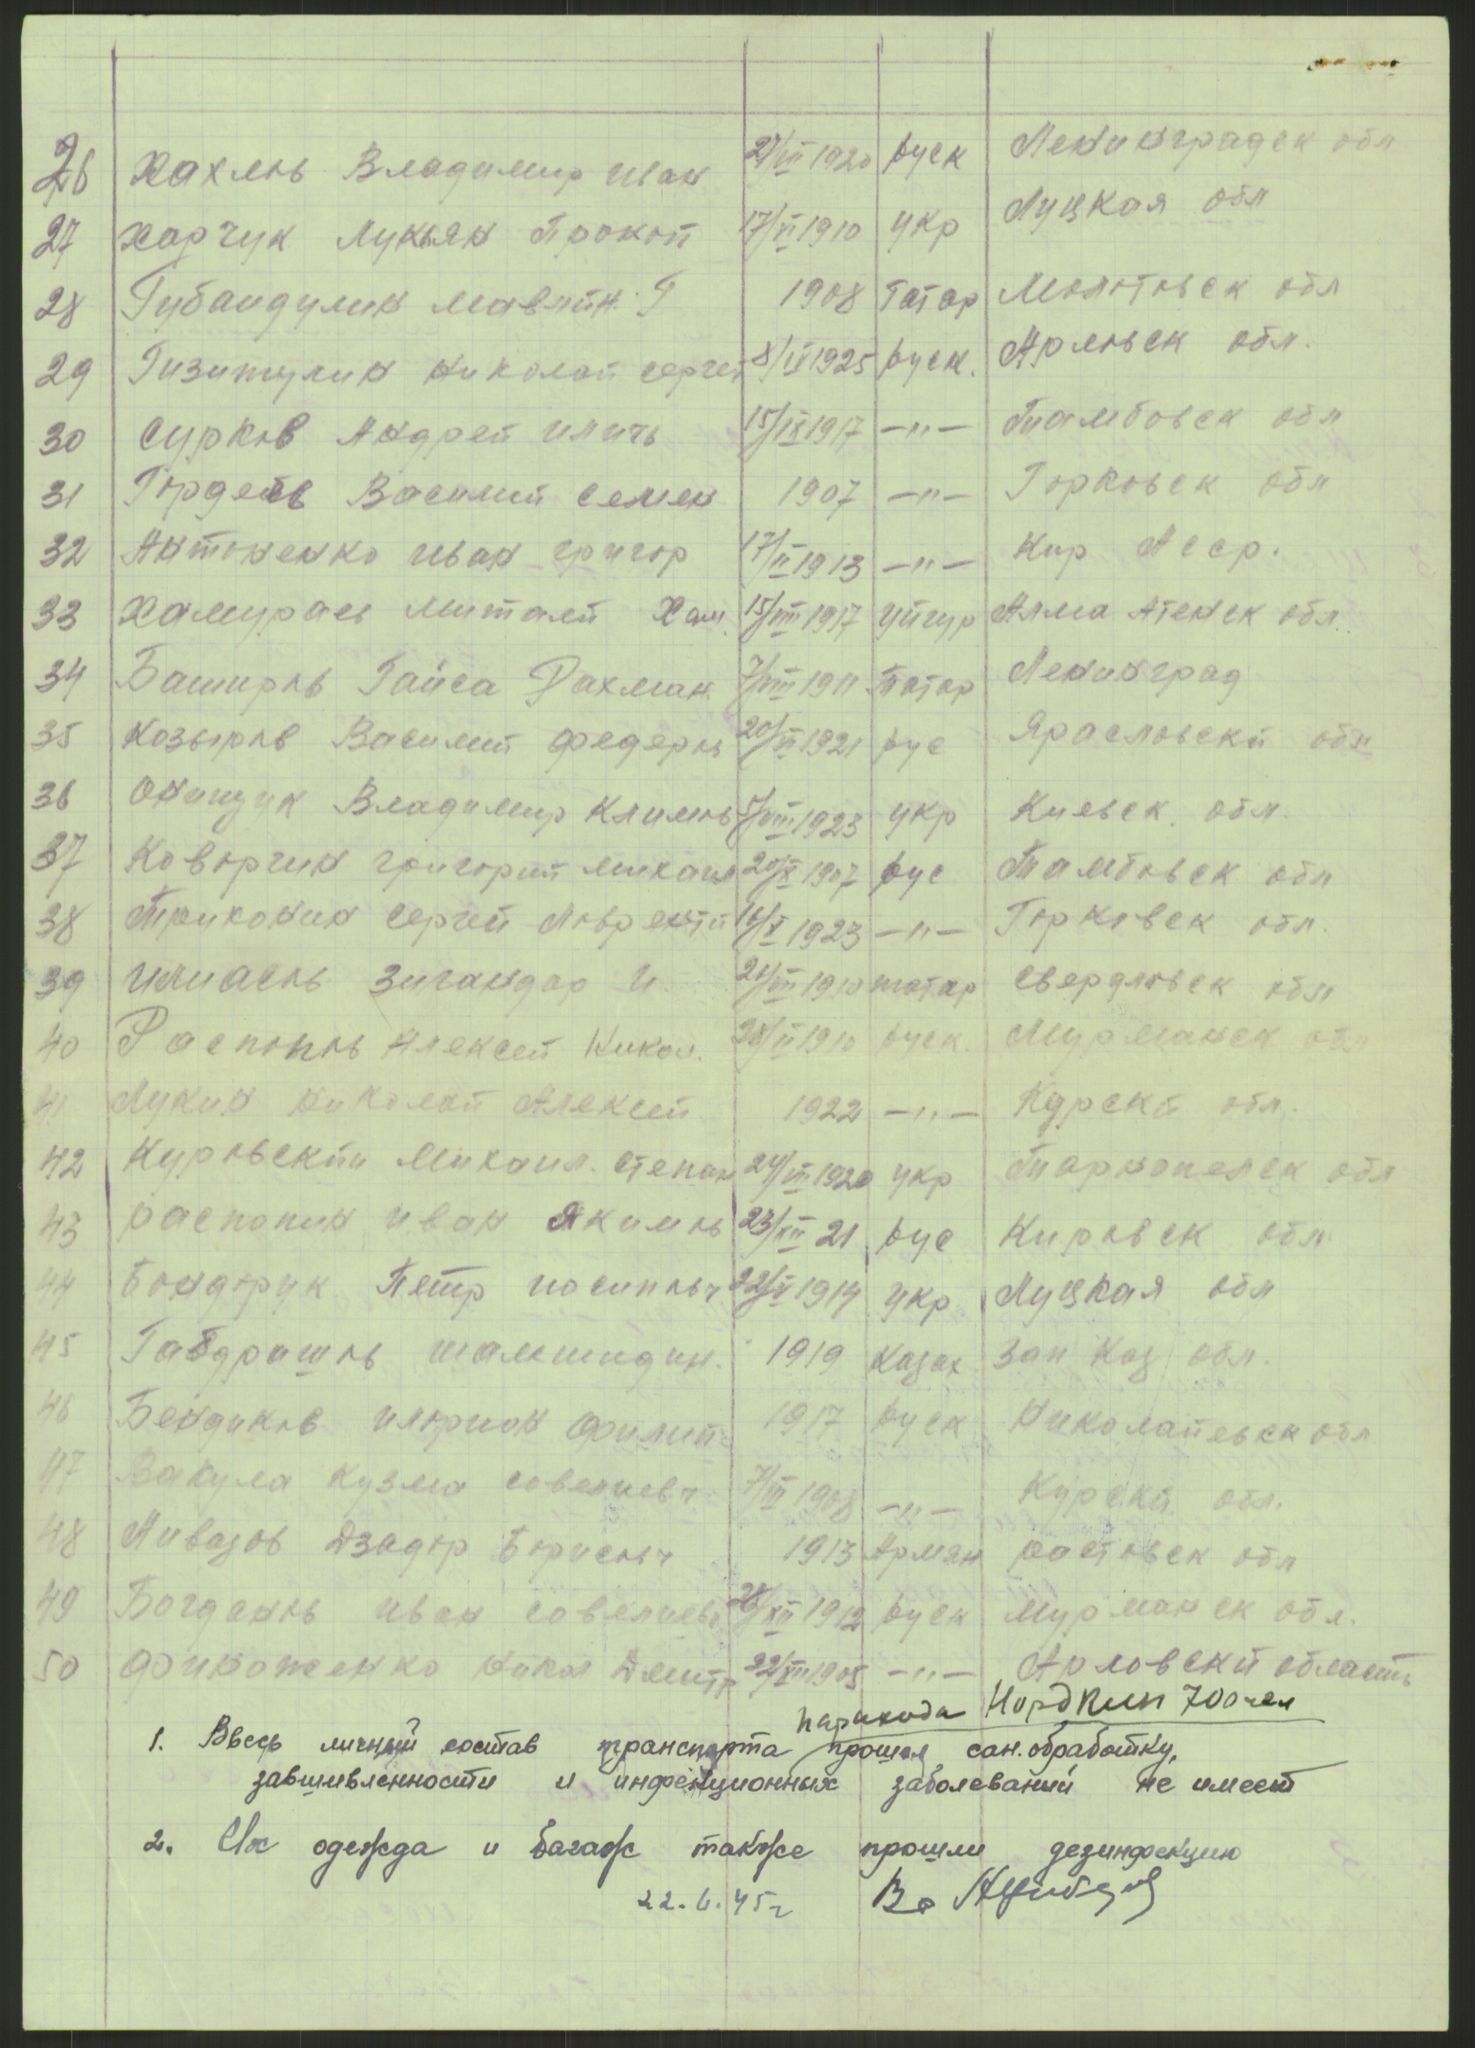 26 Хахлов Владимир Иван 27/III 1920 Руск Ленинградск обл
27 Харчук Лукьян Прокоп 17/VI 1910 Укр Луцкая обл
28 Губайдулин Мавлит. Г 1908 Татар Молотовск обл
29 Гизитулин Николай Сергей 8/IV 1925 Руск. Арловск обл.
30 Сурков Андрей Иличь 15/IX 1917 —"— Тамбовск обл
31 Гордеев Василий Семен 1907 —"— Горковск обл
32 Антоненко Иван Григор 17/II 1913 —"— Кир АССР.
33 Хамураев Миталй Хам. 15/VIII 1917 Уйгур Алма Атенск обл.
34 Баширов Гайса Рахман 7/VIII 1911 Татар Ленинград
35 Козыров Василий Федеров 20/VI 1921 Рус Ярасловский обл
36 Онищук Владимир Климов 5/VIII 1923 Укр Киевск. обл.
37 Коворгин Григорий Михаил 20/X 1907 Рус Тамбовск обл
38 Сергей Лаврентий 16/X 1923 —"— Горковск обл.
39 Илиасов Зигандар И. 1910 татар Свердловск обл
40 Распопов Алексей Никол. 28/II 1910 Руск. Мурманск обл
41. Лукин Николай Алексей 1922 —"— Курский обл.
42 Куровский Михаил. Степан 24/III 1920 Укр Тарнопелск обл
43 Распопин Иван Якимов 23/XII 21 Рус Кировск обл
44 Бондорук Петр Иосипович 22/V 1914 Укр Луцкая обл
45 Габдрашов Шамшидин. 1919 Казах Зап Каз обл.
46 Бендиков Иларион Филип. 1917 Руск Николаевск обл
47 Вакула Кузма Совелиевч 7/VI 1908 —"— Курский обл.
48 Айвазов Дзадор Борисович 1913 Армян Растовск обл
49 Богданов Иван Совелиевч 28/XII 1912 Руск Мурманск обл.
50 Никол Дмитр 22/XII 1905 —"— Арловский область
парахода Нордклип 700 чел
1. Ввесь личный состав транспорта прошел сан.обработку,
завшивленности и инфекционных заболеваний не имеет
2. Их одежда и багаж также прошли дезинфекцию
22.6.45г